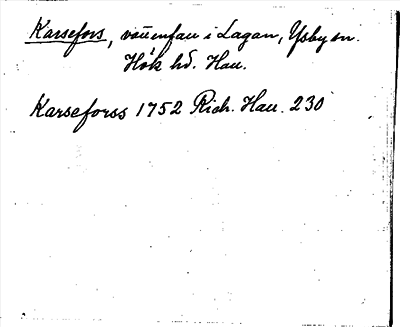 Karsefors, vattenfall i Lagan, Ysby sn.
Hök hd. Hall.
Karseforss 1752 Rich. Hall. 230